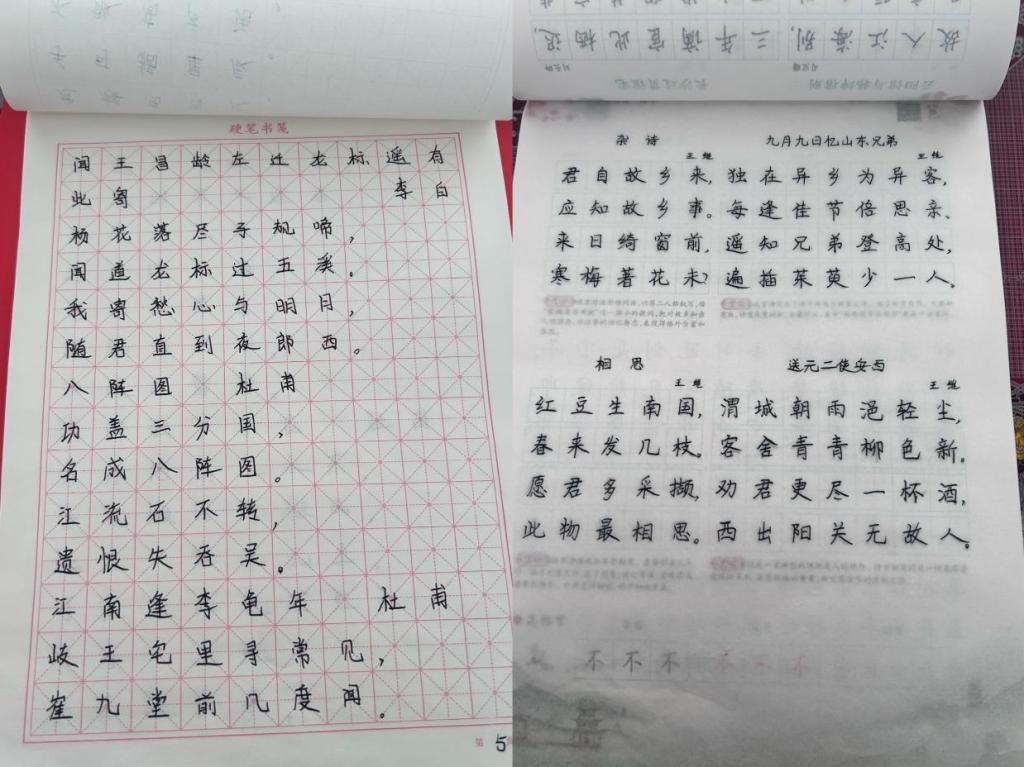 硬笔书笺
闻王昌龄左迁龙标遥有
此寄 李白
杨花落尽子规啼，
闻道龙标过五溪。
我寄愁心与明月，
随君直到夜郎西。
八阵图 杜甫
功盖三分国，
名成八阵图。
江流石不转，
遗恨失吞吴。
江南逢李龟年 杜甫
岐王宅里寻常见，
崔九堂前几度闻。
第 5
故人江海别， 三年谪宦此栖迟，
司空曙 刘长卿
云阳馆与韩绅宿别 长沙过贾谊宅
杂诗 九月九日忆山东兄弟
王维 王维
君自故乡来， 独在异乡为异客，
应知故乡事。 每逢佳节倍思亲。
来日绮窗前， 遥知兄弟登高处，
寒梅著花未？ 遍插茱萸少一人。
相思 送元二使安西
王维 王维
红豆生南国， 渭城朝雨浥轻尘，
春来发几枝。 客舍青青柳色新。
愿君多采撷， 劝君更尽一杯酒，
此物最相思。 西出阳关无故人。
不不不不不不